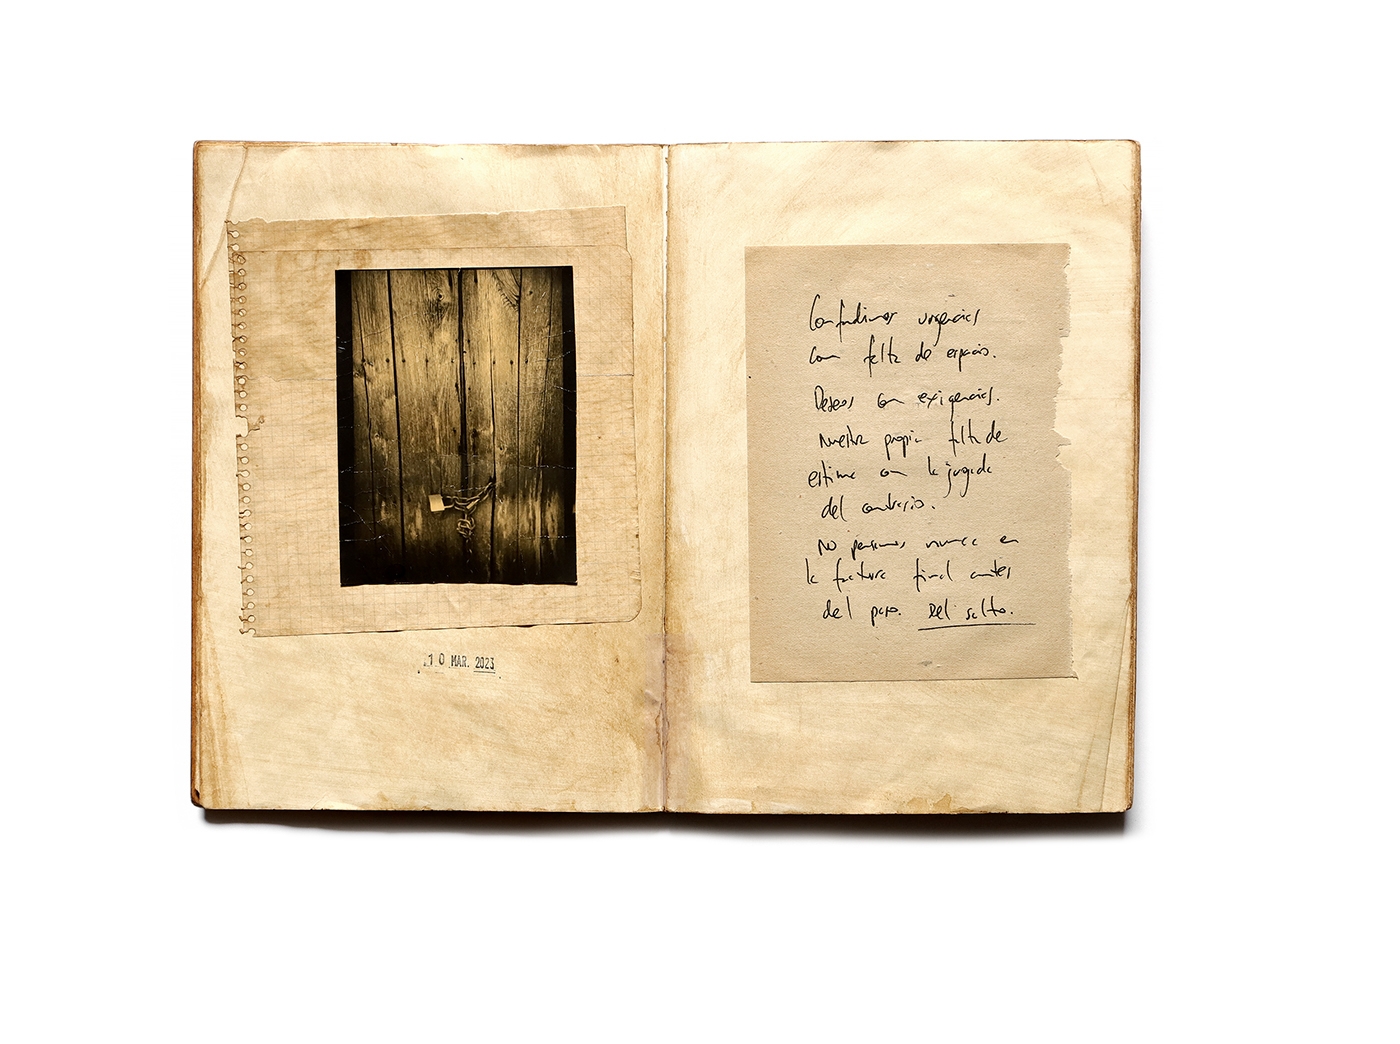 10 MAR. 2023
Confundimos urgencias
con falta de espacio.
Deseos con exigencias.
Nuestra propia falta de
estima con la jugada
del contrario.
No pensamos nunca en
la factura final antes
del paso. Del salto.